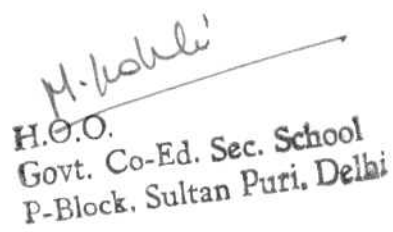 M. Kohli
H.O.O.
Govt. Co-Ed. Sec. School
P-Block, Sultan Puri, Delhi